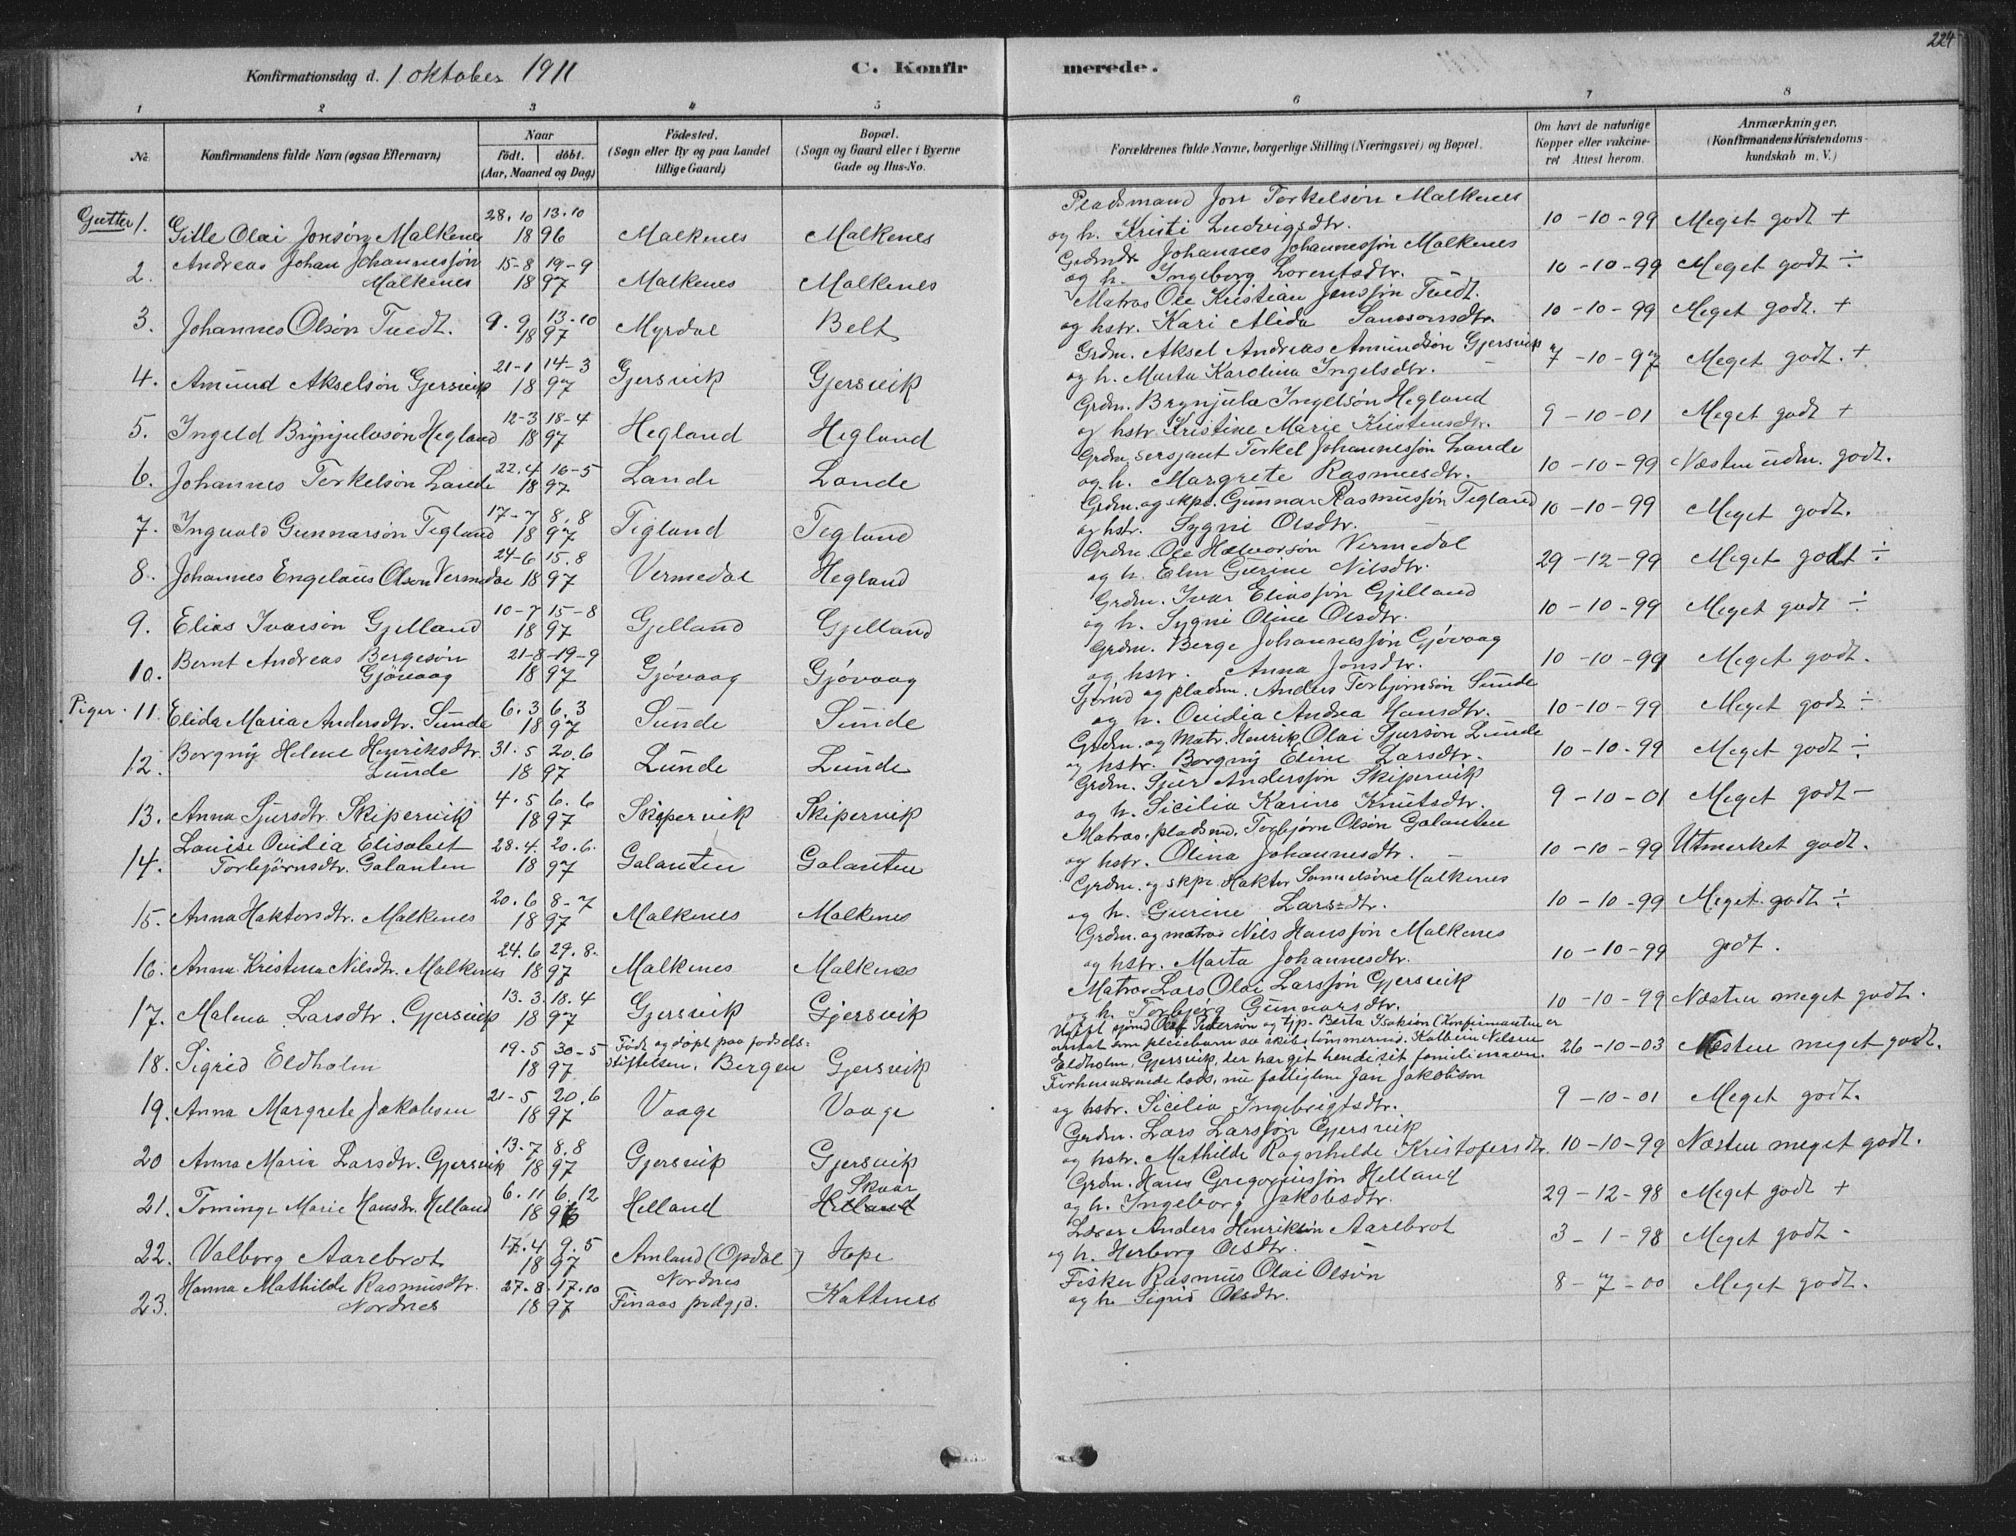 224
Konfirmationsdag d. 1 oktober 1911
C. Konfirmerede.
1 2 3 4 5 6 7 8
No.
Konfirmandens fulde Navn (ogsaa Efternavn)
Naar født. døbt. (Aar, Maaned og Dag)
Fødested. (Sogn eller By og paa Landet tillige Gaard)
Bopæl. (Sogn og Gaard eller i Byerne Gade og Hus-No.
Forældrenes fulde Navne, borgerlige Stilling (Næringsvei) og Bopæl.
Om havt de naturlige Kopper eller vakcineret Attest herom.
Anmærkninger. (Konfirmandens Kristendomskundskab m. V.)
Gutter 1. Gitle Olai Jonsøn Malkenes 28.10 13.10 1896 Malkenes Malkenes Pladsmand Jon Torkelsøn Malkenes og h. Kristi Ludvigsdtr. 10-10-99 Meget godt +
2. Andreas Johan Johannessøn Malkenes 15-8 19-9 1897 Malkenes Malkenes Grdmdr. Johannes Johannessøn Malkenes og h. Ingeborg Lorentsdtr. 10-10-99 Meget godt ÷
3. Johannes Olsøn Tvedt. 9.9 13.10 1897 Myrdal Belt Matros Ole Kristian Jenssøn Tvedt. og hstr. Kari Alida Samsonsdtr. 10-10-99 Meget godt. +
4. Amund Akselsøn Gjersvik 21-1 14-3 1897 Gjersvik Gjersvik Grdm. Aksel Andreas Amundsøn Gjersvik og h. Marta Karolina Ingelsdtr. 7-10-97 Meget godt. +
5. Ingeld Brynjulvsøn Hegland 12-3 18-4 1897 Hegland Hegland Grdm. Brynjulv Ingelsøn Hegland og hstr. Kristine Marie Kristensdtr. 9-10-01 Meget godt +
6. Johannes Torkelsøn Lande 22.4 16-5 1897 Lande Lande Grdm. sersjant Torkel Johannessøn Lande og h. Margrete Rasmusdtr. 10-10-99 Næsten udm. godt.
7. Ingvald Gunnarsøn Tegland 17-7 8.8 1897 Tegland Tegland Grdm. og skpr. Gunnar Rasmussøn Tegland og hstr. Sygni Olsdtr. 10-10-99 Meget godt.
8. Johannes Engelaus Olsøn Vermedal 24-6 15.8 1897 Vermedal Hegland Grdm. Ole Halvorsøn Vermedal og h. Elen Gurine Nilsdtr. 29-12-99 Meget godt ÷
9. Elias Ivarsøn Gjelland 10-7 15-8 1897 Gjelland Gjelland Grdm. Ivar Eliassøn Gjelland og h. Sygni Oline Olsdtr. 10-10-99 Meget godt ÷
10. Bernt Andreas Bergesøn Gjövaag 21-8-19-9 1897 Gjövaag Gjövaag Grdm. Berge Johannessøn Gjövaag og hstr. Anna Jonsdtr. 10-10-99 Meget godt.
Piger. 11. Elida Maria Andersdtr. Sunde 6.3 6.3 1897 Sunde Sunde Sjømd og pladsm. Anders Torbjørnsøn Sunde og h. Ovidia Andrea Hansdtr. 10-10-99 Meget godt ÷
12. Borgny Helene Henriksdtr. Lunde 31.5 20.6 1897 Lunde Lunde Grdm. og Matr. Henrik Olai Sjursøn Lunde og hstr. Borgny Eline Larsdtr. 10-10-99 Meget godt ÷
13. Anna Sjursdtr. Skipervik 4.5 6.6 1897 Skipervik Skipervik Grdm. Sjur Anderssøn Skipervik og h. Sicilia Karina Knutsdtr. 9-10-01 Meget godt -
14. Lovise Ovidia Elisabet Torbjørnsdtr. Galanten 28.4. 20.6. 1897 Galanten Galanten Matros, pladsmd. Torbjørn Olsøn Galanten og hstr. Olina Johannesdtr. 10-10-99 Utmerket godt.
15. Anna Haktorsdtr. Malkenes 20.6 8-7 1897 Malkenes Malkenes Grdm. og skpr. Haktor Samuelsøn Malkenes og h. Gurine Larsdtr. 10-10-99 Meget godt ÷
16. Anna Kristina Nilsdtr. Malkenes 24.6 29.8. 1897 Malkenes Malkenes Grdm. og matros Nils Hanssøn Malkenes og hstr. Marta Johannesdtr. 10-10-99 godt.
17. Malena Larsdtr. Gjersvik 13.3. 18.4 1897 Gjersvik Gjersvik Matros Lars Olai Larssøn Gjersvik og h. Torbjørg Gunnarsdtr. 10-10-99 Næsten meget godt.
18. Sigrid Eldholm 19.5 30-5 1897 Født og døpt paa fødselsstiftelsen, Bergen Gjersvik Ugift sjømd Olaf Pedersøn og tjp. Berta Isaksøn (Konfirmanten er antat som pleiebarn av skibstømmermd. Kolbein Nilsen Eldholm, Gjersvik, der har get hende sit familienavn. 26-10-03 Næsten meget godt.
19. Anna Margrete Jakobsen 21-5 20.6 1897 Vaage Vaage Forhenværende lods, nu fattiglem Jan Jakobsøn og hstr. Sicilia Ingebrigtsdtr. 9-10-01 Meget godt.
20 Anna Maria Larsdtr. Gjersvik 13.7 8.8 1897 Gjersvik Gjersvik Grdm. Lars Larssøn Gjersvik og hstr. Mathilde Ragnhilde Kristofersdtr. 10-10-99 Næsten meget godt.
21. Tominge Marie Hansdtr. Helland 6.11 6.12 1896 Helland Skaar Helland Grdm. Hans Gregoriussøn Helland og h. Ingeborg Jakobsdtr. 29-12-98 Meget godt +
22. Valborg Aarebrot 17.4 9.5 1897 Amland (Opdal) Hope Lærer Anders Henriksøn Aarebrot og h. Herborg Olsdtr. 3-1-98 Meget godt -
23. Hanna Mathilde Rasmusdtr. Nordnes 27.8. 17.10 1897 Nordnes Finaas prdgjd. Kattnes Fisker Rasmus Olai Olsøn og h. Sigrid Olsdtr. 8-7-00 Meget godt.